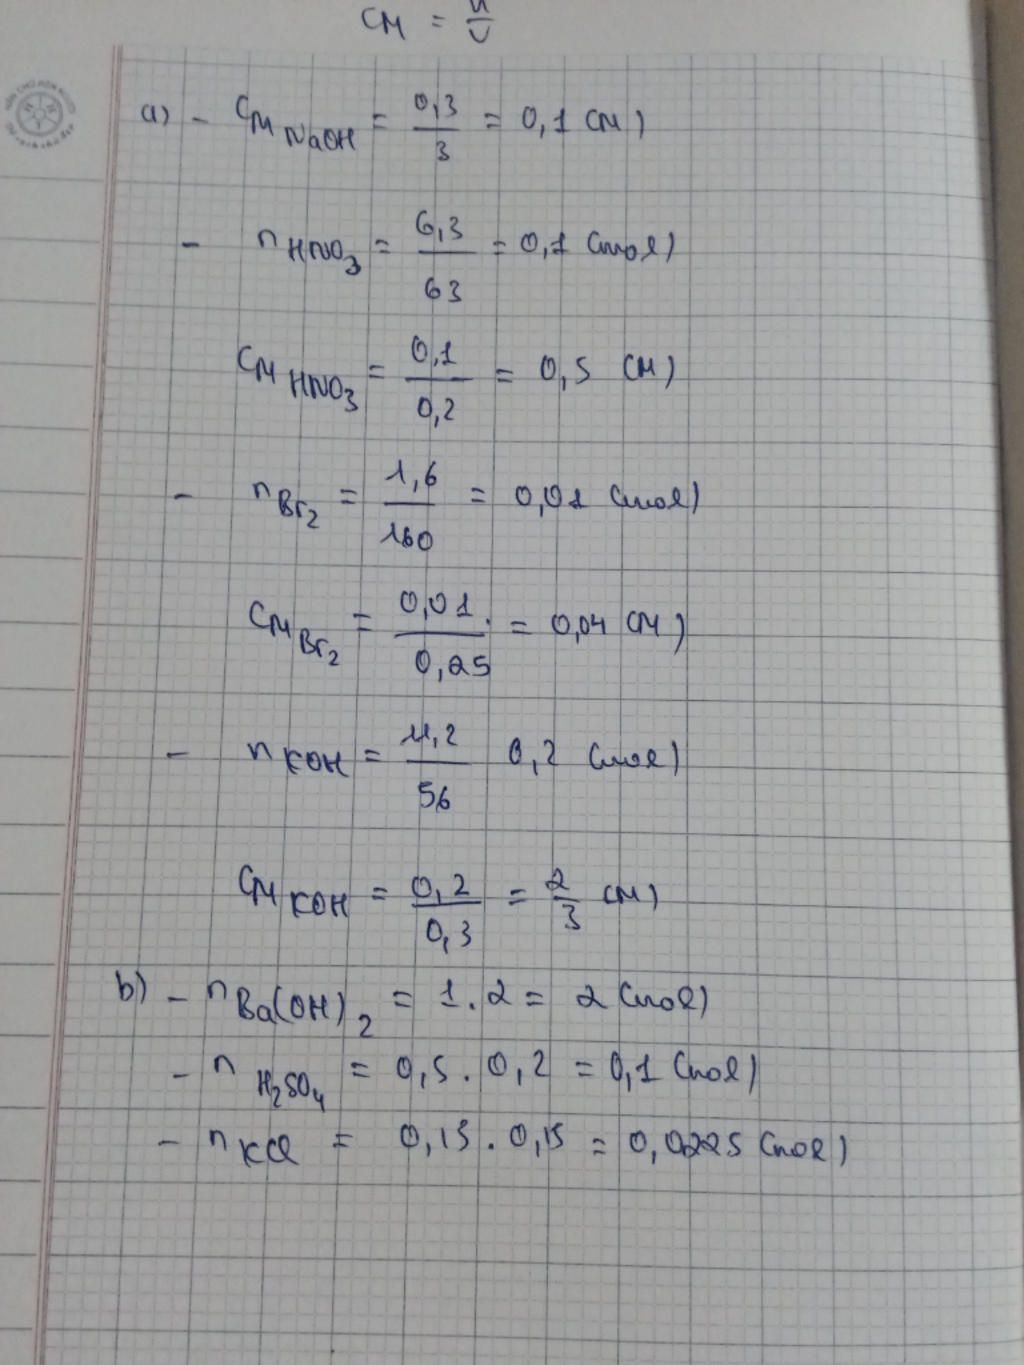 CM = n/V
a) - CM NaOH = 0,3/3 = 0,1 (M)
- nHNO3 = 6,3/63 = 0,1 (mol)
CM HNO3 = 0,1/0,2 = 0,5 (M)
- nBr2 = 1,6/160 = 0,01 (mol)
CM Br2 = 0,01/0,25 = 0,04 (M)
- nKOH = 11,2/56 0,2 (mol)
CM KOH = 0,2/0,3 = 2/3 (M)
b) - nBa(OH)2 = 1.2 = 2 (mol)
- nH2SO4 = 0,5.0,2 = 0,1 (mol)
- nKCl = 0,15.0,15 = 0,0225 (mol)